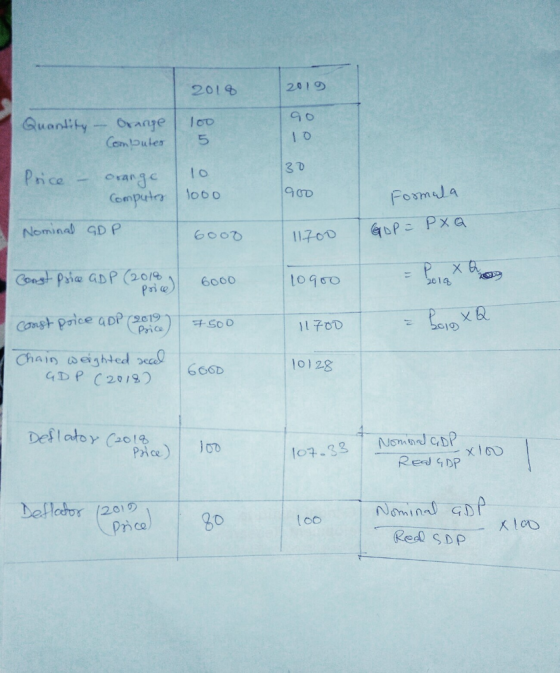 2018 2019
Quantity - Orange 100 90
Computer 5 10
Price - orange 10 30
Computer 1000 900 Formula
Nominal GDP 6000 11700 GDP = P X Q
Const Price GDP (2018 Price) 6000 10900 = P2018 X Q
Const price GDP (2019 Price) 7500 11700 = P2019 X Q
Chain weighted real GDP (2018) 6000 10128
Deflator (2018 Price) 100 107.33 Nominal GDP / Real GDP X 100
Deflator (2019 Price) 80 100 Nominal GDP / Real GDP X 100